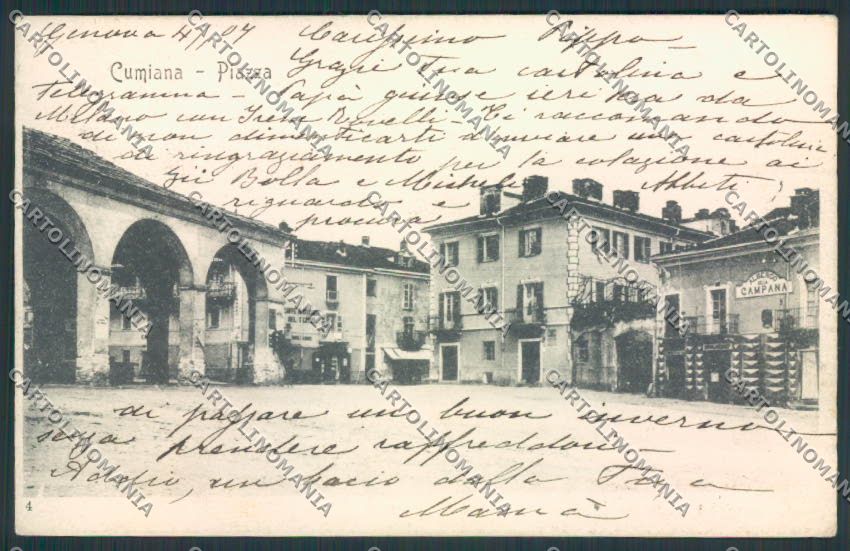 Genova 4 Carissimo Pippo
Cumiana - Piazza
Grazie Tua cartolina e
telegramma - Papà giunse ieri sera da
Milano con Irene - Ti raccomando
di non dimenticarti d'inviare una cartolina
di ringraziamento per la colazione ai
Sig Bolla e Michele Abbiti
riguardo e
procura
ALBERGO
DELLA
CAMPANA
di passare un buon inverno
senza prendere raffreddori
Addio, un bacio dalla Tua
Mamà
4
CARTOLINOMANIA